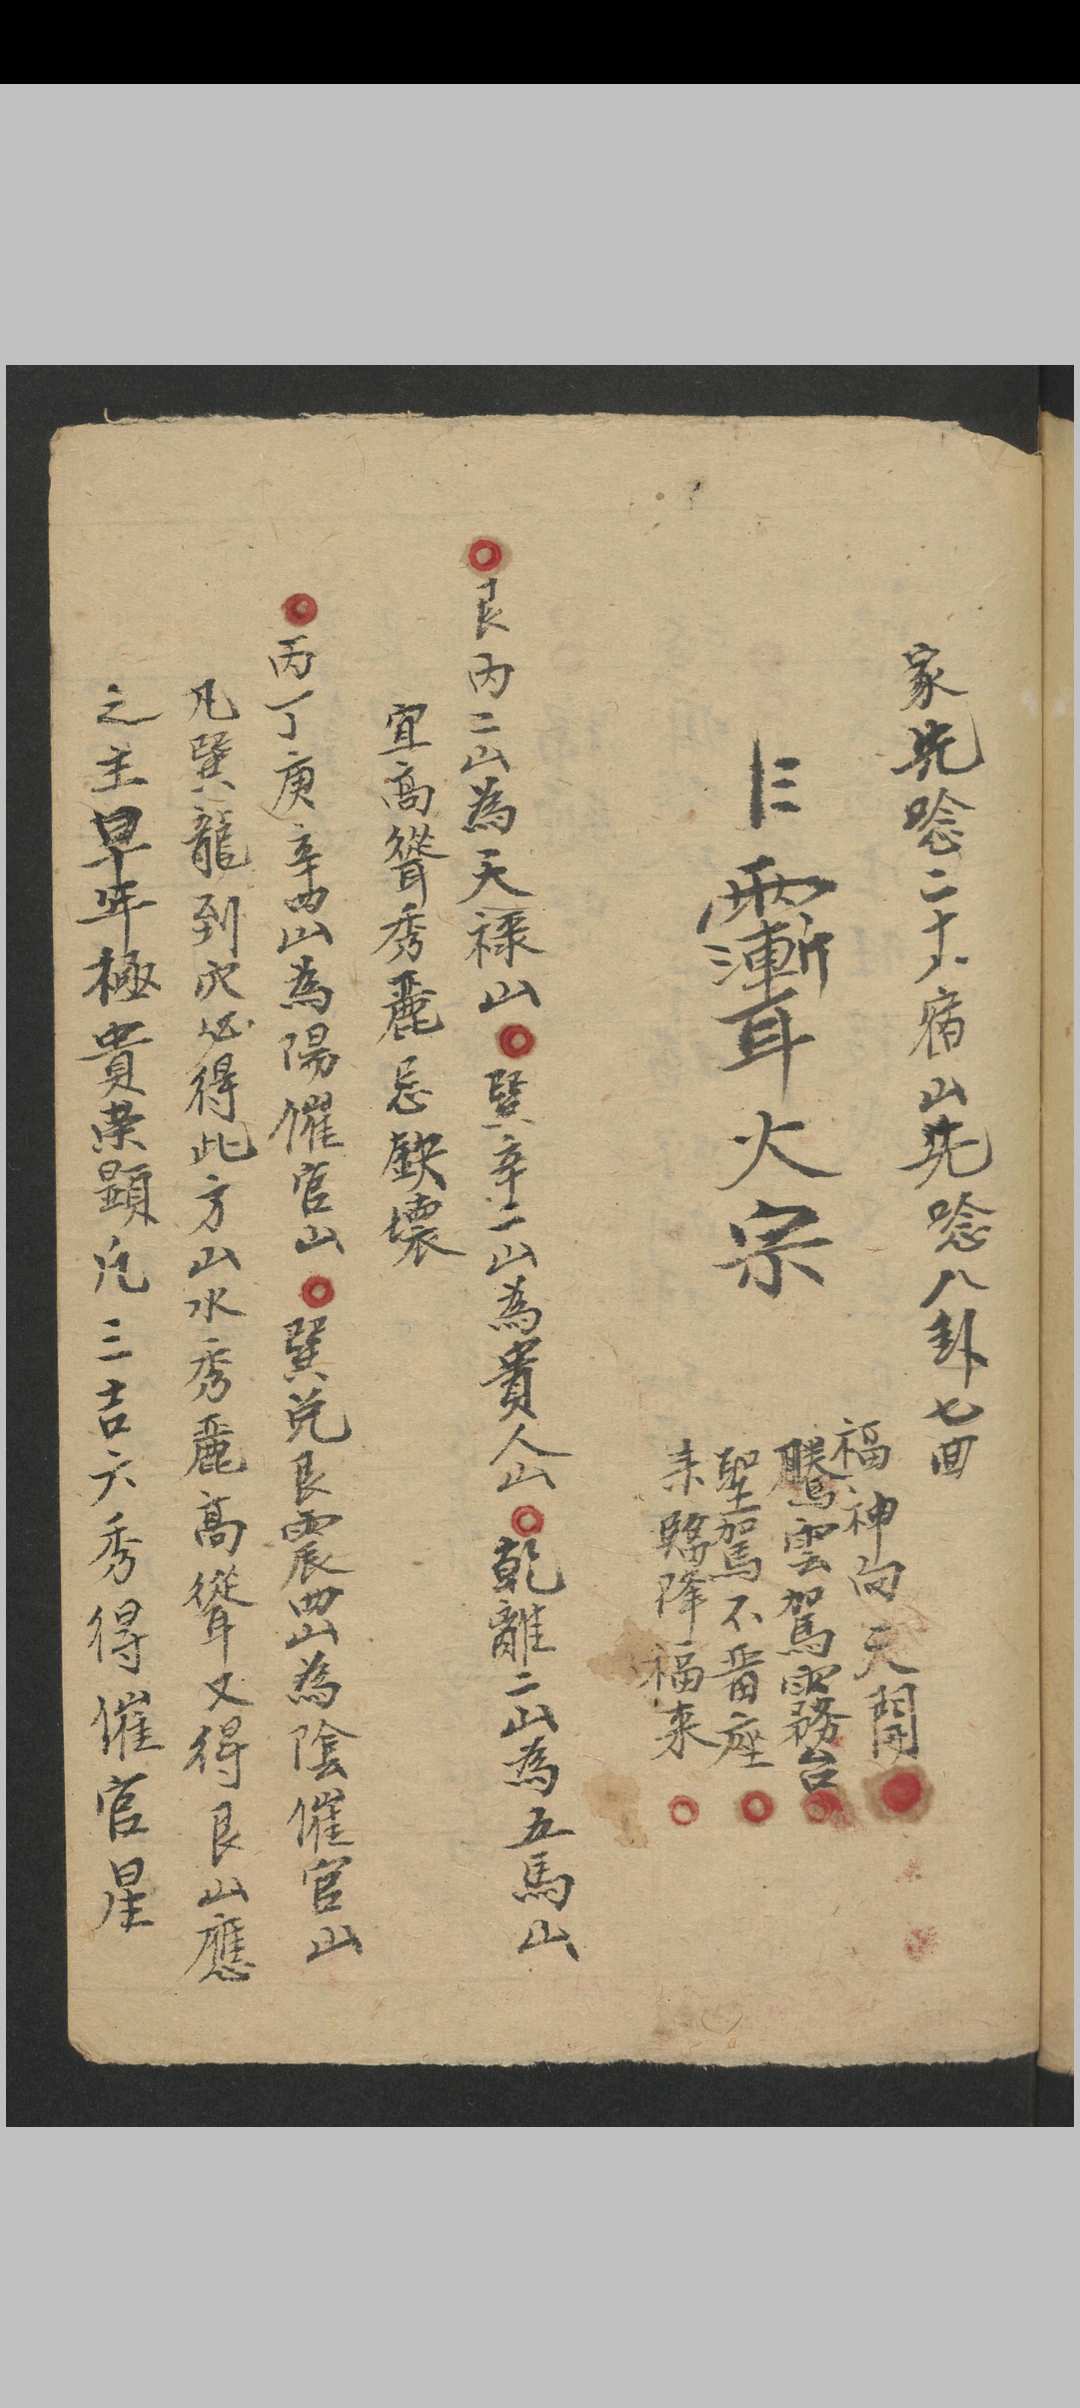 家先唸二十八宿山先唸八卦七回
福神向天開
騰雲駕霧台
聖駕不畨座
来臨降福来
聻火宗
艮丙二山為天禄山 巽辛二山為貴人山 乾離二山為五馬山
宜高聳秀麗忌缺壞
丙丁庚辛四山為陽催官山 巽兑艮震四山為陰催官山
凡巽龍到穴必得此方山水秀麗高聳又得艮山應
之主早年極貴荣顕凡三吉六秀得催官星